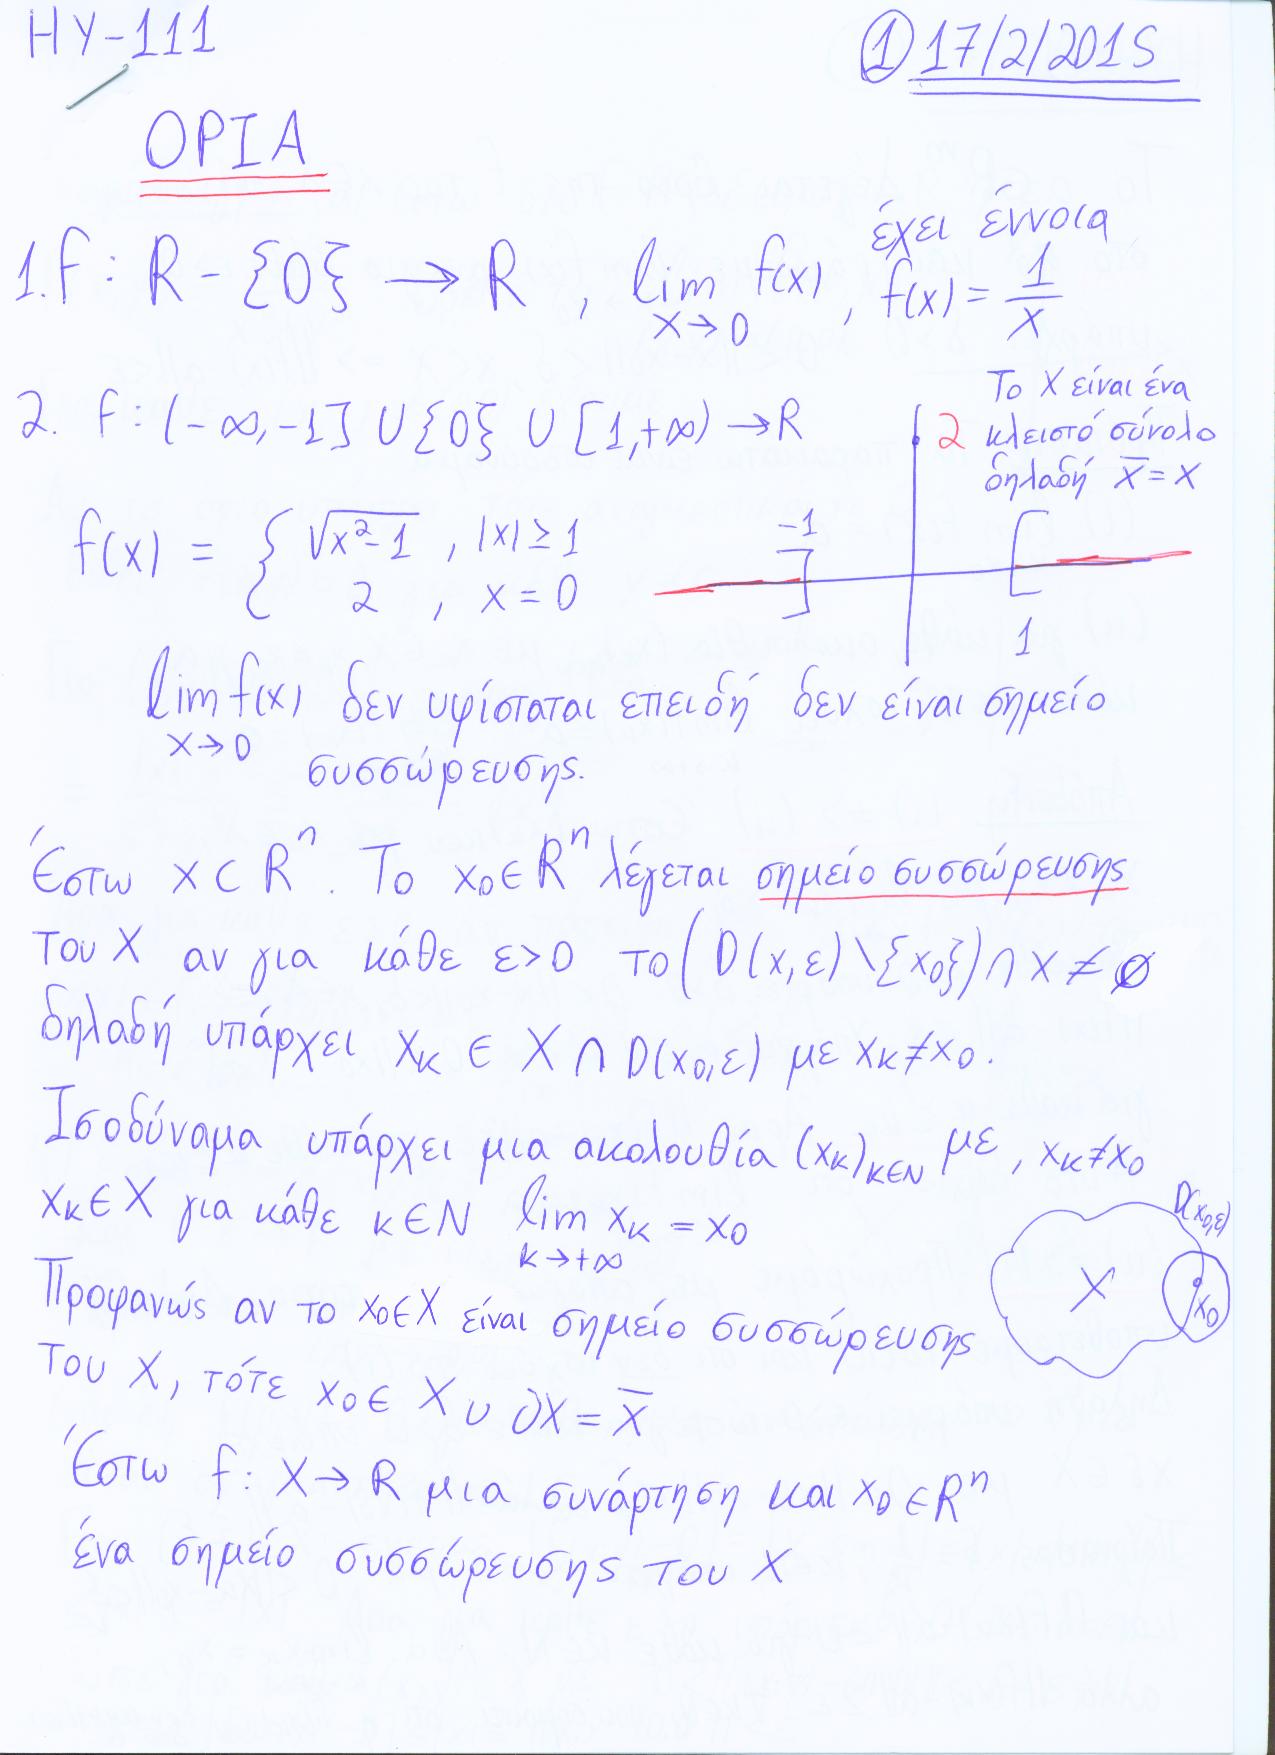 HY-111
① 17/2/2015
ΟΡΙΑ
1. f: R - {0} → R , lim f(x) , έχει έννοια f(x) = 1/x
x→0
2. f: (-∞,-1] ∪ {0} ∪ [1,+∞) → R
Το X είναι ένα
κλειστό σύνολο
δηλαδή X̄ = X
f(x) = { √(x²-1) , |x| ≥ 1
2 , x = 0
2
-1
1
lim f(x) δεν υφίσταται επειδή δεν είναι σημείο
x→0
συσσώρευσης.
Έστω X ⊂ Rⁿ. Το x₀ ∈ Rⁿ λέγεται σημείο συσσώρευσης
του X αν για κάθε ε>0 το (D(x,ε) \ {x₀}) ∩ X ≠ ∅
δηλαδή υπάρχει xκ ∈ X ∩ D(x₀,ε) με xκ ≠ x₀.
Ισοδύναμα υπάρχει μια ακολουθία (xκ)κ∈N με , xκ ≠ x₀
xκ ∈ X για κάθε κ ∈ N lim xκ = x₀
k→+∞
D(x₀,ε)
X
x₀
Προφανώς αν το x₀ ∈ X είναι σημείο συσσώρευσης
του X, τότε x₀ ∈ X ∪ ∂X = X̄
Έστω f: X → R μια συνάρτηση και x₀ ∈ Rⁿ
ένα σημείο συσσώρευσης του X